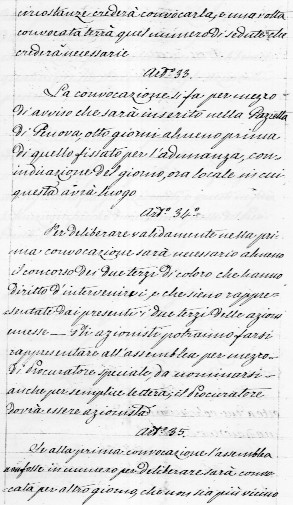 circostanze crederà convocarla, e una volta
convocata terrà quel numero di sedute che
crederà necessarie
Art.º 33.
La convocazione si fa per mezzo
di avviso che sarà inserito nella Gazzetta
di Genova, otto giorni almeno prima
di quello fissato per l'adunanza, con
induazione del giorno, ora locale in cui
questa avrà luogo
Art.º 34.º
Per deliberare validamente nella pri
ma convocazione sarà necessario almeno
il concorso dei due terzi di coloro che hanno
diritto d'intervenirvi, e che sieno rappre
sentate dai presenti i due terzi delle azioni
emesse — Gli azionisti potranno farsi
rappresentare all'assemblea per mezzo
di Procuratore speciale, da nominarsi
anche per semplice lettera; il Procuratore
dovrà essere azionista
Art.º 35.
Se alla prima convocazione l'assemblea
non fosse in numero per deliberare sarà convo
cata per altro giorno, che non sia più vicino